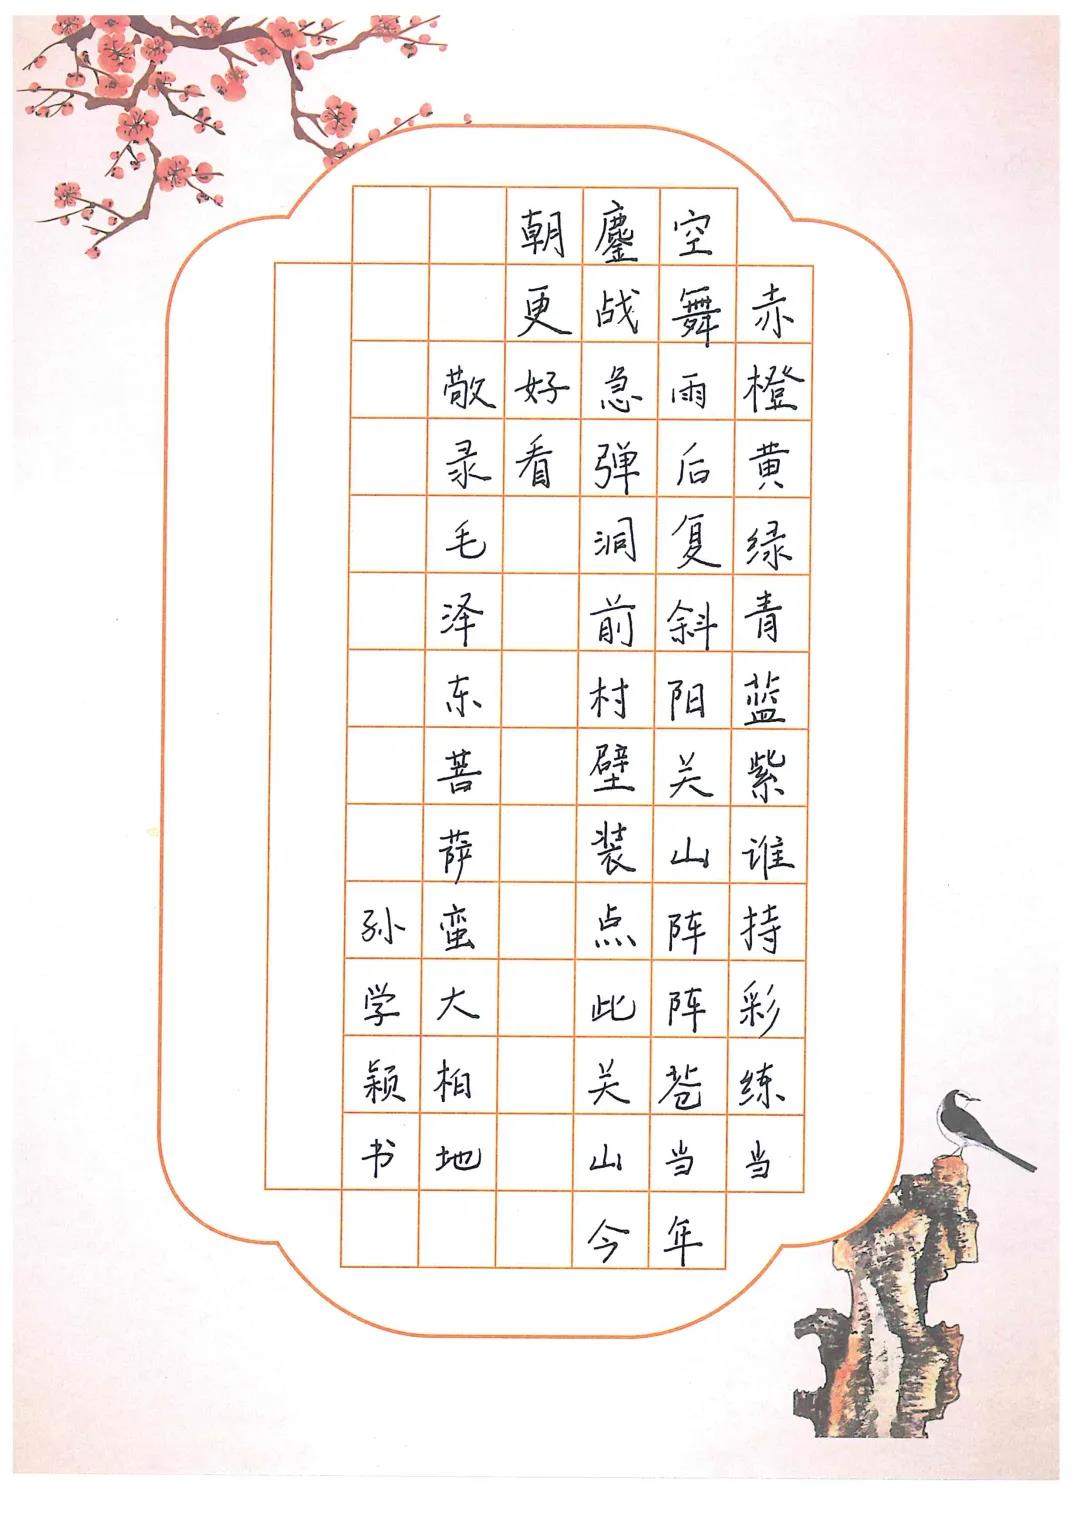 赤橙黄绿青蓝紫谁持彩练当
空舞雨后复斜阳关山阵阵苍当年
鏖战急弹洞前村壁装点此关山今
朝更好看
敬录毛泽东菩萨蛮大柏地
孙学颖书